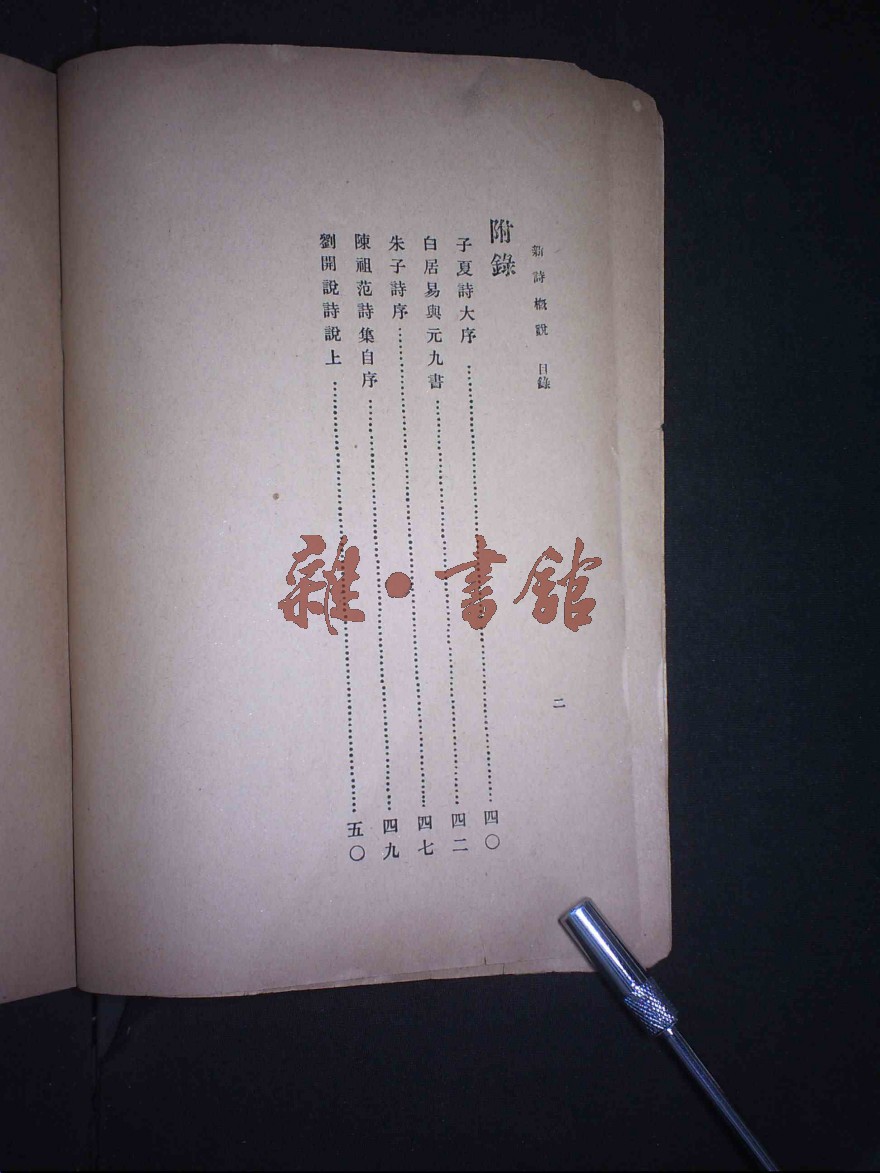 新詩概說 目錄
二
附錄
子夏詩大序………四〇
白居易與元九書………四二
朱子詩序………四七
陳祖范詩集自序………四九
劉開說詩說上………五〇
雜·書館